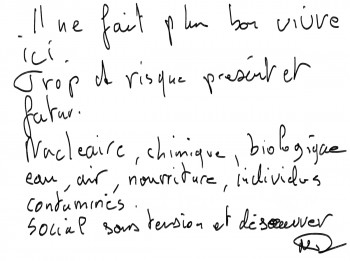 . Il ne fait plus bon vivre
ici.
Trop de risque present et
futur.
Nucleaire, chimique, biologique
eau, air, nourriture, individus
contaminés.
Social sous tension et